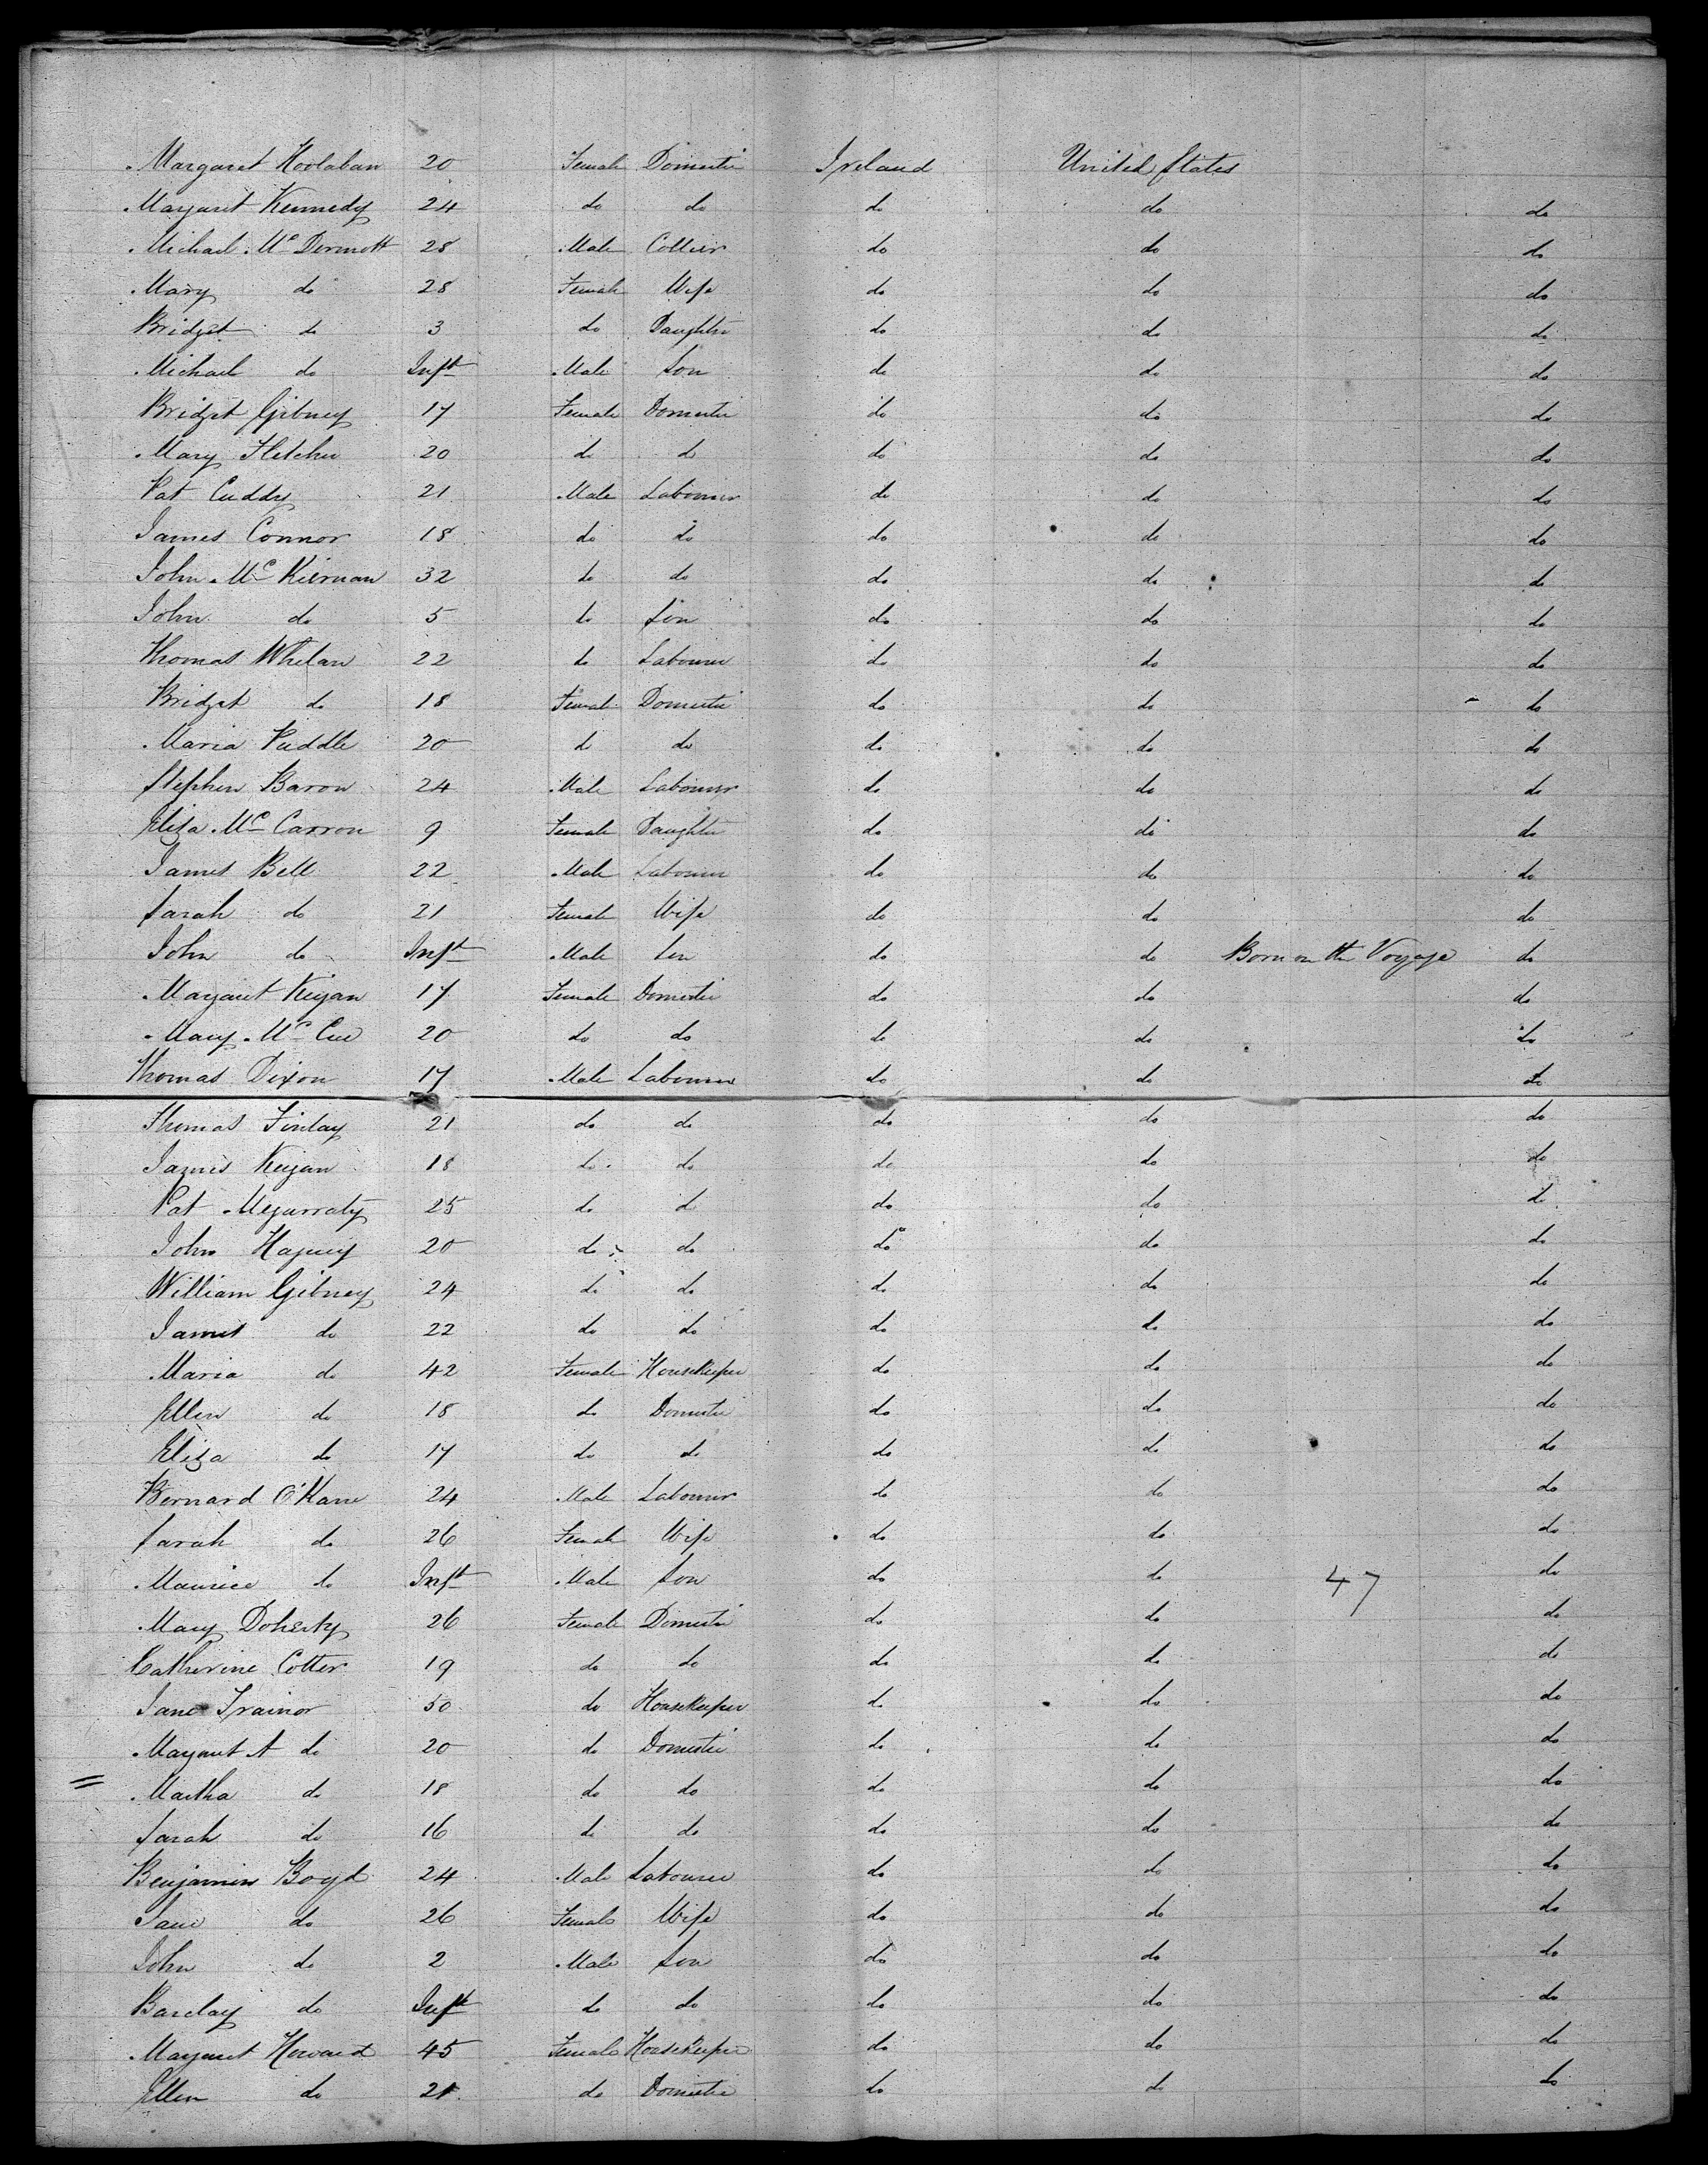 Margaret Hoolahan 20 Female Domestic Ireland United States
Margaret Kennedy 24 do do do do do
Michael McDermott 28 Male Collier do do do
Mary do 28 Female Wife do do do
Bridget do 3 do Daughter do do do
Michael do Inft Male Son do do do
Bridget Gibney 17 Female Domestic do do do
Mary Fletcher 20 do do do do do
Pat Cuddy 21 Male Labourer do do do
James Connor 18 do do do do do
John McKiernan 32 do do do do do
John do 5 do Son do do do
Thomas Whelan 22 do Labourer do do do
Bridget do 18 Female Domestic do do do
Maria Puddle 20 do do do do do
Stephen Baron 24 Male Labourer do do do
Eliza McCarron 9 Female Daughter do do do
James Bell 22 Male Labourer do do do
Sarah do 21 Female Wife do do do
John do Inft Male Son do do Born on the Voyage do
Margaret Keegan 17 Female Domestic do do do
Mary McCue 20 do do do do do
Thomas Dixon 17 Male Labourer do do do
Thomas Finlay 21 do do do do do
James Keegan 18 do do do do do
Pat Megarraty 25 do do do do do
John Hagney 20 do do do do do
William Gibney 24 do do do do do
James do 22 do do do do do
Maria do 42 Female Housekeeper do do do
Ellen do 18 do Domestic do do do
Eliza do 17 do do do do do
Bernard O'Kane 24 Male Labourer do do do
Sarah do 26 Female Wife do do do
Maurice do Inft Male Son do do 47 do
Mary Doherty 26 Female Domestic do do do
Catherine Cotter 19 do do do do do
Jane Trainor 50 do Housekeeper do do do
Margaret A do 20 do Domestic do do do
= Martha do 18 do do do do do
Sarah do 16 do do do do do
Benjamin Boyd 24 Male Labourer do do do
Jane do 26 Female Wife do do do
John do 2 Male Son do do do
Barclay do Inft do do do do do
Margaret Howard 45 Female Housekeeper do do do
Ellen do 21 do Domestic do do do